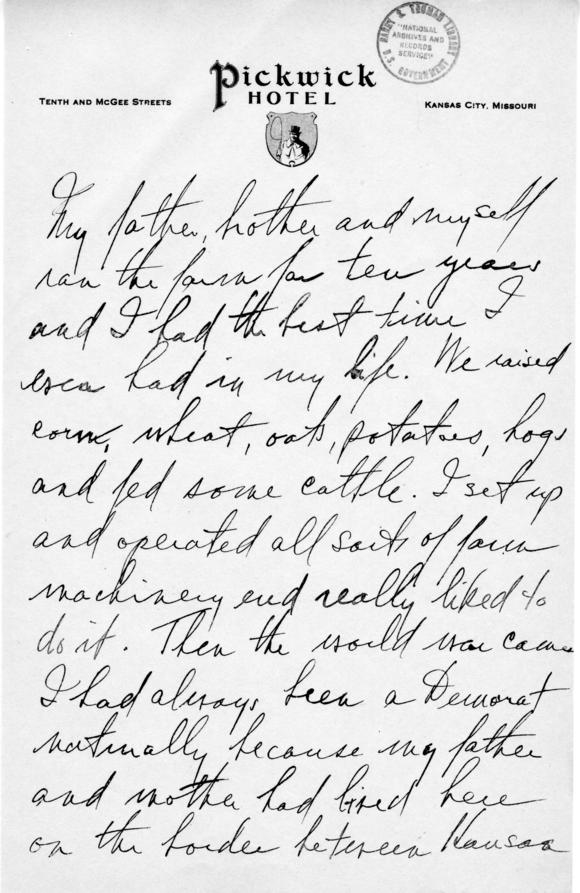 HARRY S. TRUMAN LIBRARY
"NATIONAL
ARCHIVES AND
RECORDS
SERVICE"
U.S. GOVERNMENT
Pickwick
HOTEL
TENTH AND MCGEE STREETS
KANSAS CITY, MISSOURI
My father, brother and myself
ran the farm for ten years
and I had the best time I
ever had in my life. We raised
corn, wheat, oats, potatoes, hogs
and fed some cattle. I set up
and operated all sorts of farm
machinery end really liked to
do it. Then the world war came
I had always been a Demorat
naturally because my father
and mother had lived here
on the border between Kansas